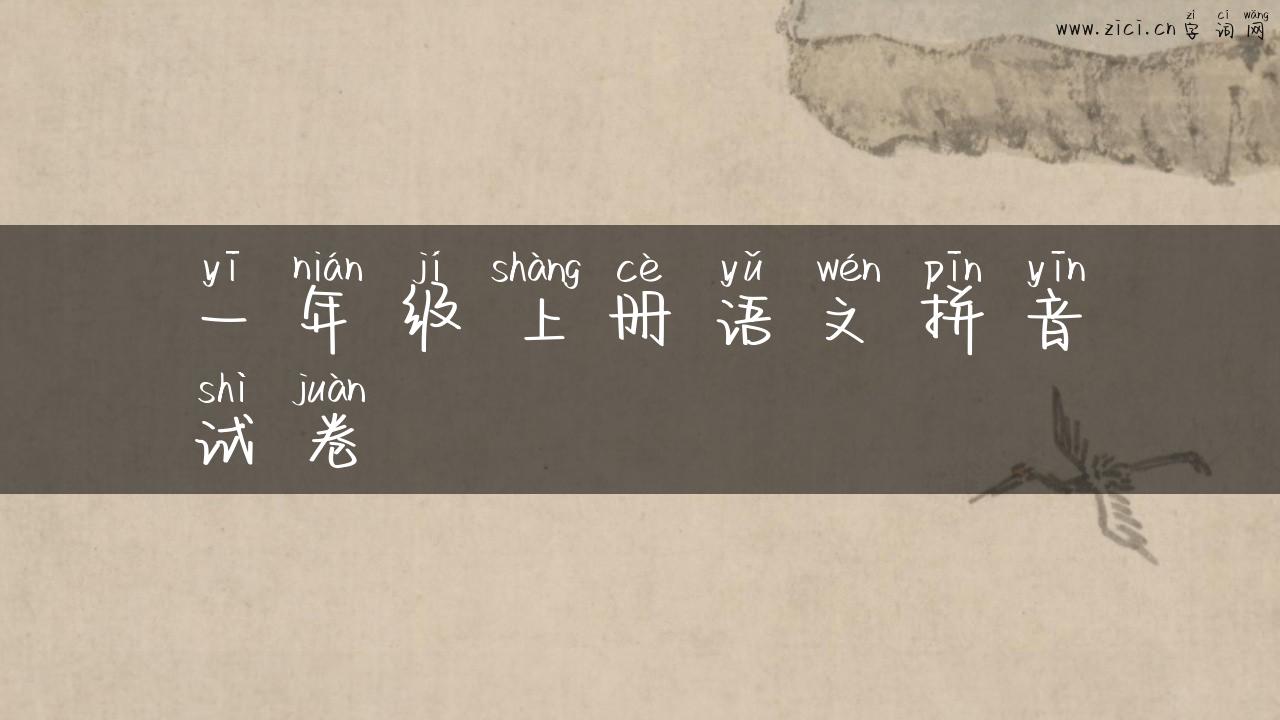 zì cí wǎng
www.zici.cn 字 词 网
yī nián jí shàng cè yǔ wén pīn yīn
一 年 级 上 册 语 文 拼 音
shì juàn
试 卷